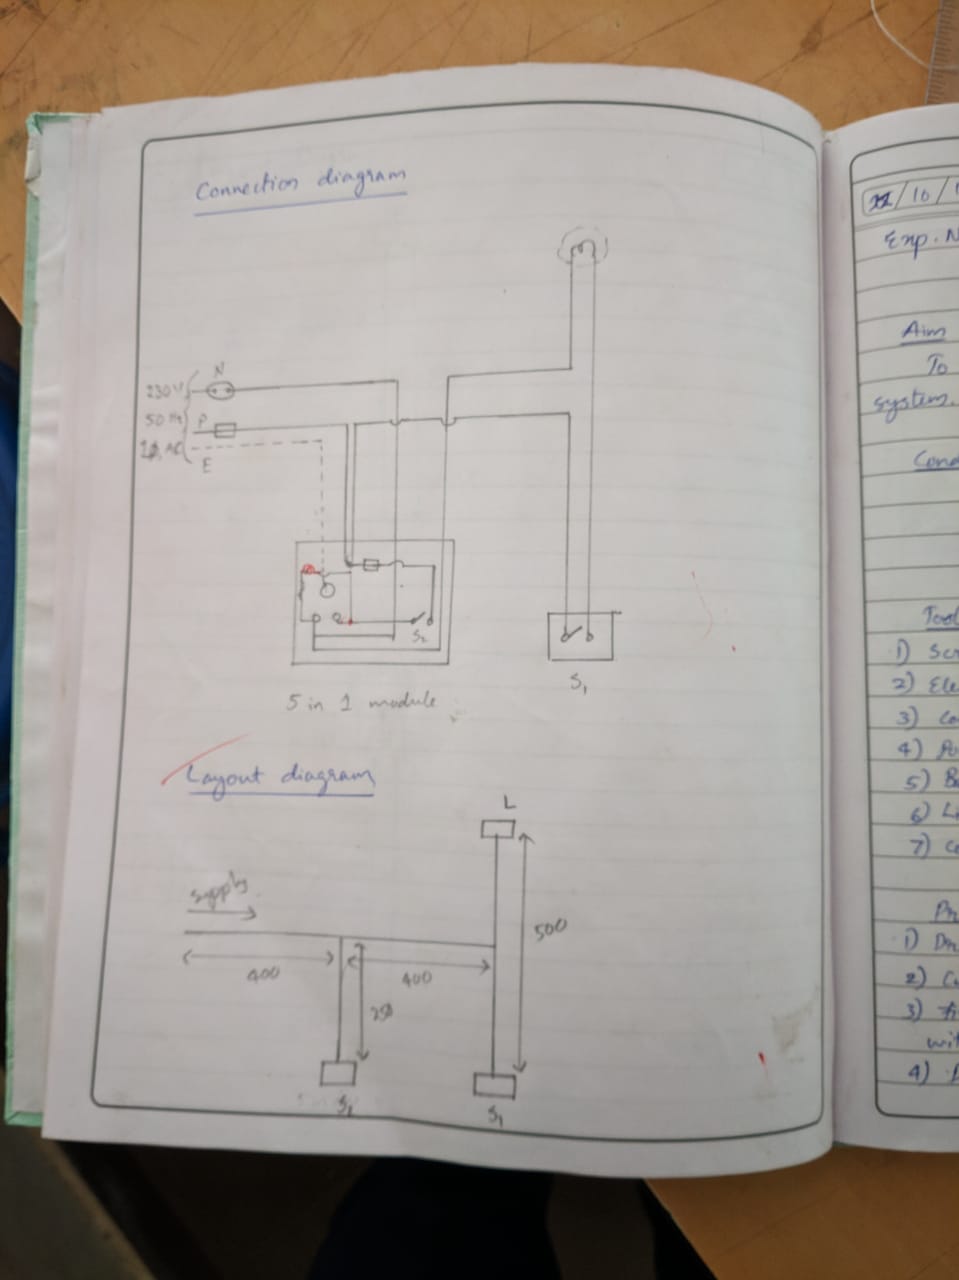 Connection diagram
N
230V
50 Hz
P
1ϕ, AC
E
S2
5 in 1 module
S1
Layout diagram
L
supply
500
400
400
250
S2
S1
/10/
Exp. N
Aim
To
system.
Conn
Tool
1) Scr
2) Ele
3) Co
4) Po
5) B
6) Li
7) Co
Pr
1) Dr
2) Cu
3) Fi
wit
4)